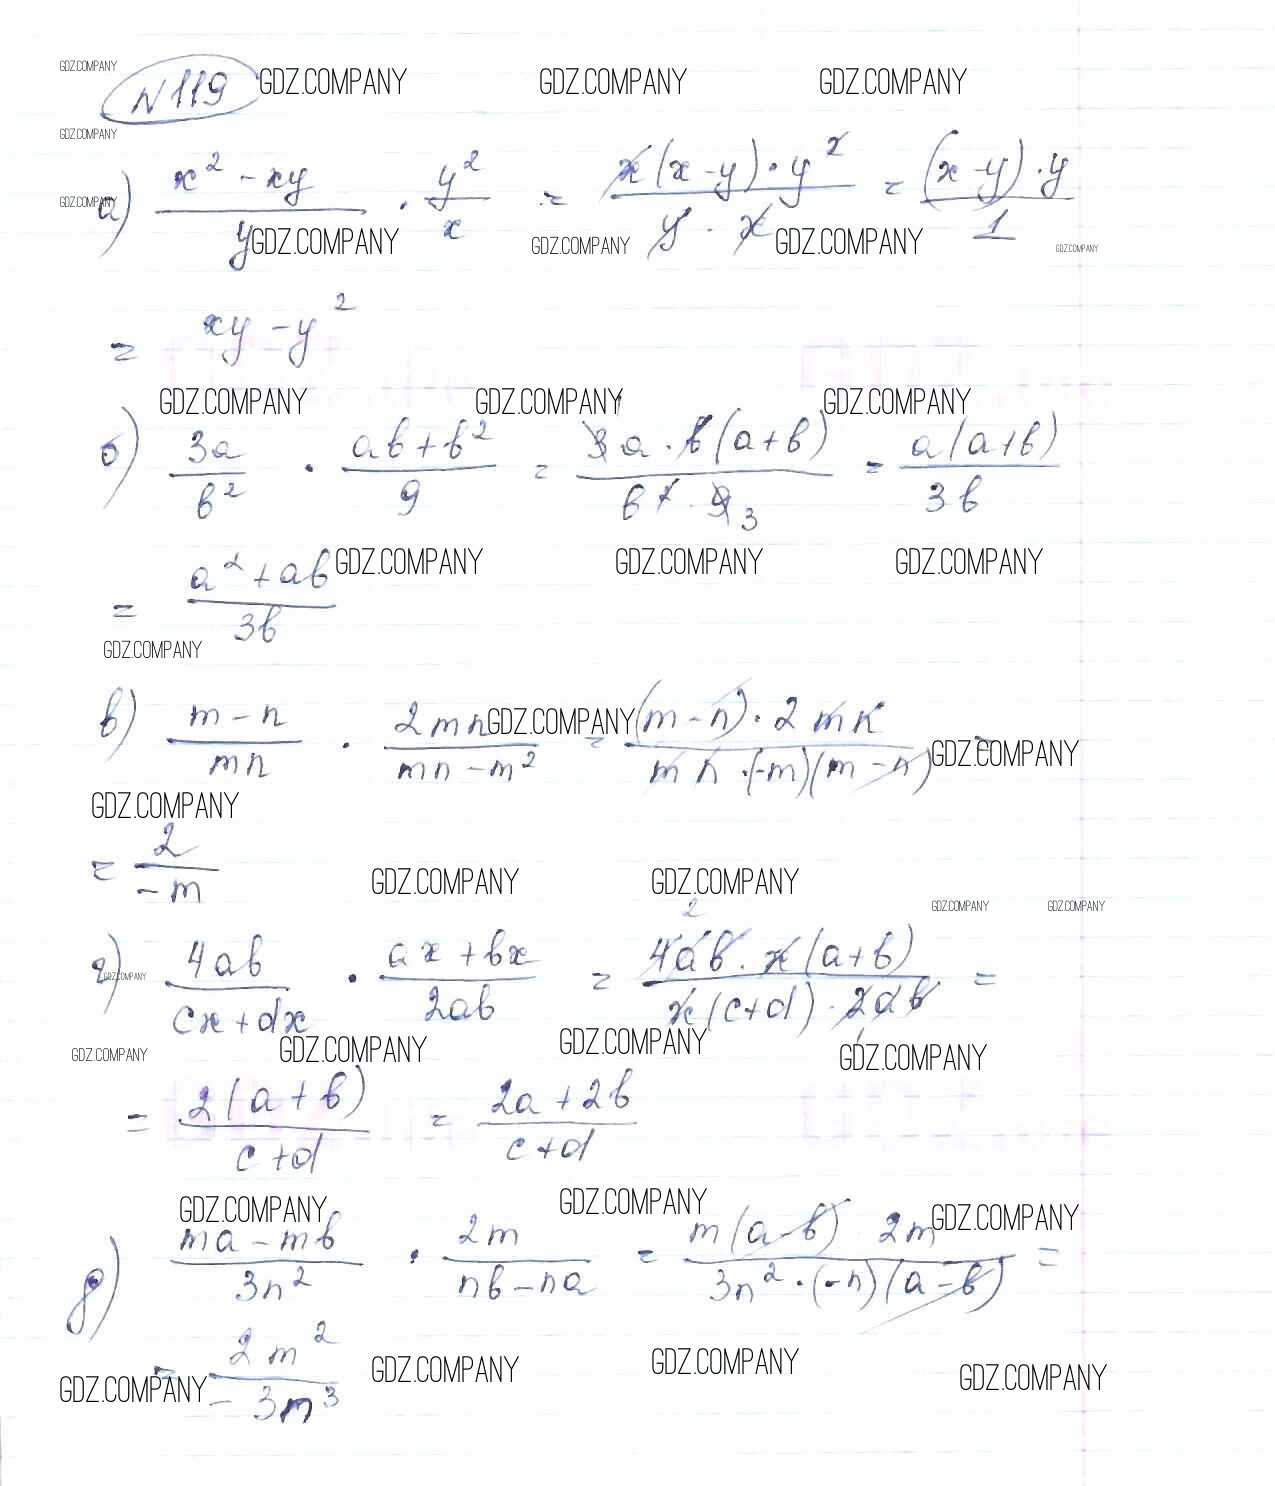 GDZ.COMPANY
N 119 GDZ.COMPANY GDZ.COMPANY GDZ.COMPANY
GDZ.COMPANY
GDZ.COMPANY
а) (x² - xy)/y · y²/x = (x(x-y) · y²)/(y · x) = ((x-y) · y)/1
GDZ.COMPANY GDZ.COMPANY GDZ.COMPANY GDZ.COMPANY
= xy - y²
GDZ.COMPANY GDZ.COMPANY GDZ.COMPANY
б) 3a/b² · (ab+b²)/9 = (3a · b(a+b))/(b² · 9) 3 = a(a+b)/3b
GDZ.COMPANY GDZ.COMPANY GDZ.COMPANY
= (a²+ab)/3b
GDZ.COMPANY
в) (m-n)/mn · 2mn/(mn-m²) = ((m-n) · 2mn)/(mn · (-m)(m-n)) =
GDZ.COMPANY GDZ.COMPANY
GDZ.COMPANY
= 2/-m
GDZ.COMPANY GDZ.COMPANY
GDZ.COMPANY GDZ.COMPANY
г) 4ab/(cx+dx) · (ax+bx)/2ab = 2 (4ab · x(a+b))/(x(c+d) · 2ab) 1 =
GDZ.COMPANY
GDZ.COMPANY GDZ.COMPANY GDZ.COMPANY GDZ.COMPANY
= 2(a+b)/(c+d) = (2a+2b)/(c+d)
GDZ.COMPANY GDZ.COMPANY GDZ.COMPANY
д) (ma-mb)/3n² · 2m/(nb-na) = (m(a-b) 2m)/(3n² · (-n)(a-b)) =
= 2m²/-3m³
GDZ.COMPANY GDZ.COMPANY GDZ.COMPANY GDZ.COMPANY